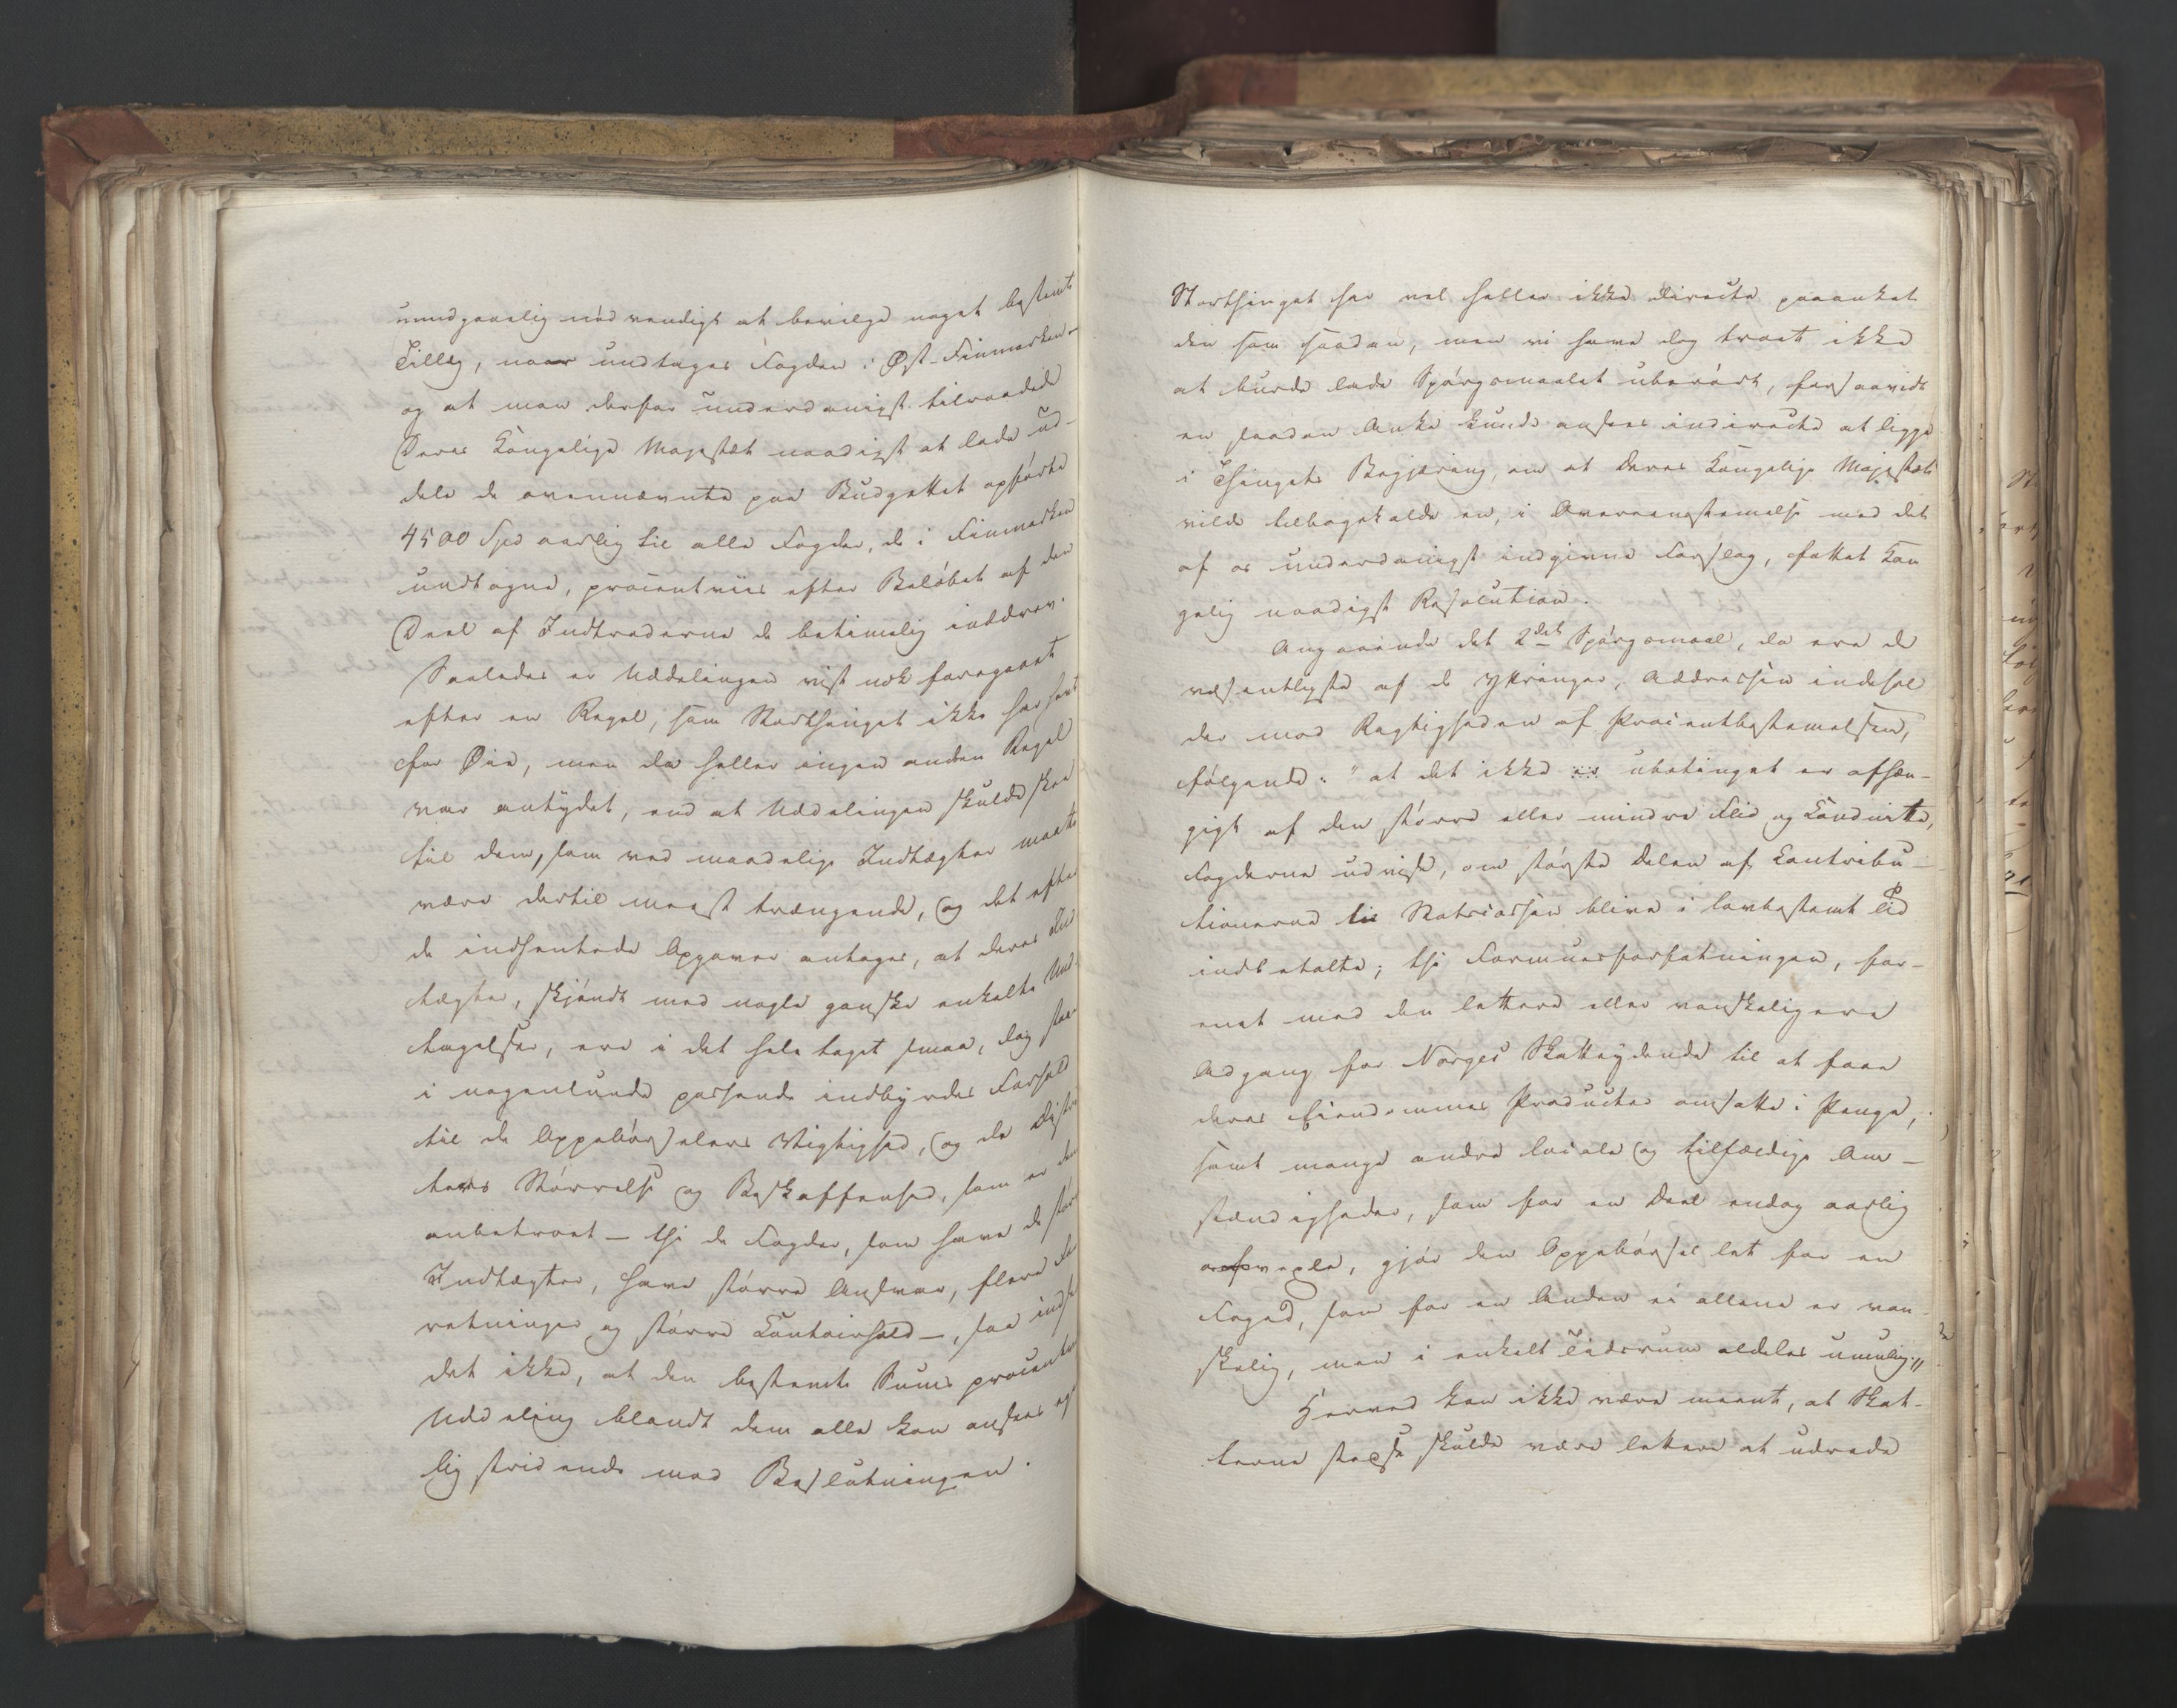 uundgaaelig nødvendigt at bevilge noget bestemt
Tillæg, naar undtages Fogden i Øst-Finmarken
og at man derfor underdanigst tilraadede
Deres Kongelige Majestæt naadigst at lade ud-
dele de ovennævnte paa Budgettet opførte
4500 Spd aarlig til alle Fogder, de i Finmarken
undtagne, procentviis efter Beløbet af den
Deel af Indtraderne de betimelig inddrev.
Saaledes er Uddelingen vist nok foregaaet
efter en Regel, som Storthinget ikke har havt
for Øie, men da heller ingen anden Regel
var antydet, end at Uddelingen skulde skee
til dem, som ved maadelige Indtægter maatte
være dertil meest trængende, og det efter
de indhentede Opgaver antages, at deres Ind
tægter, skjøndt med nogle ganske enkelte Und-
tagelser, ere i det hele taget smaa, dog staae
i nogenlunde passende indbyrdes Forhold
til de Oppebørselers Vigtighed, og de Distric
ters Størrelse og Beskaffenhed, som er dem
anbetroet – thi de Fogder, som have de større
Indtægter, have større Ansvar, flere For
retninger og større Contoirhold –, saa indsees
det ikke, at den bestemte Sums procentviis
Uddeling blandt dem alle kan ansees egent
lig stridende mod Beslutningen.
Storthinget har vel heller ikke directe paaanket
den som saadan, men vi have dog troet ikke
at burde lade Spørgsmaalet uberørt, forsaavidt
en saadan Anke kunde ansees indirecte at ligge
i Thingets Begjæring, om at Deres Kongelige Majestæt
vilde tilbagekalde en, i Overeenstemmelse med det
af os underdanigst indgivne Forslag, fattet Kon
gelig naadigst Resolution.
Angaaende det 2det Spørgsmaal, da ere de
væsentligste af de Yttringer, Addressen indehol
der mod Rigtigheden af Procentbestemmelsen,
følgende: "at det ikke er ubetinget er afhæn-
gigt af den større eller mindre Flid og Conduite,
Fogderne udvise, om største Delen af Contribu-
tionerne til Statscassen blive i lovbestemt Tid
indbetalte; thi Formuesforfatningen, for-
enet med den lettere eller vanskeligere
Adgang for Norges Skatteydende til at faae
deres Eiendommes Producter omsatte i Penge,
samt mange andre locale og tilfældige Om-
stændigheder, som for en Deel endog aarlig
afvexle, gjør den Oppebørsel let for en
Foged, som for en Anden ei allene er van-
skelig, men i enkelt Tidsrum aldeles umulig."
Herved kan ikke være meent, at Skat-
terne skulde være lettere at udrede